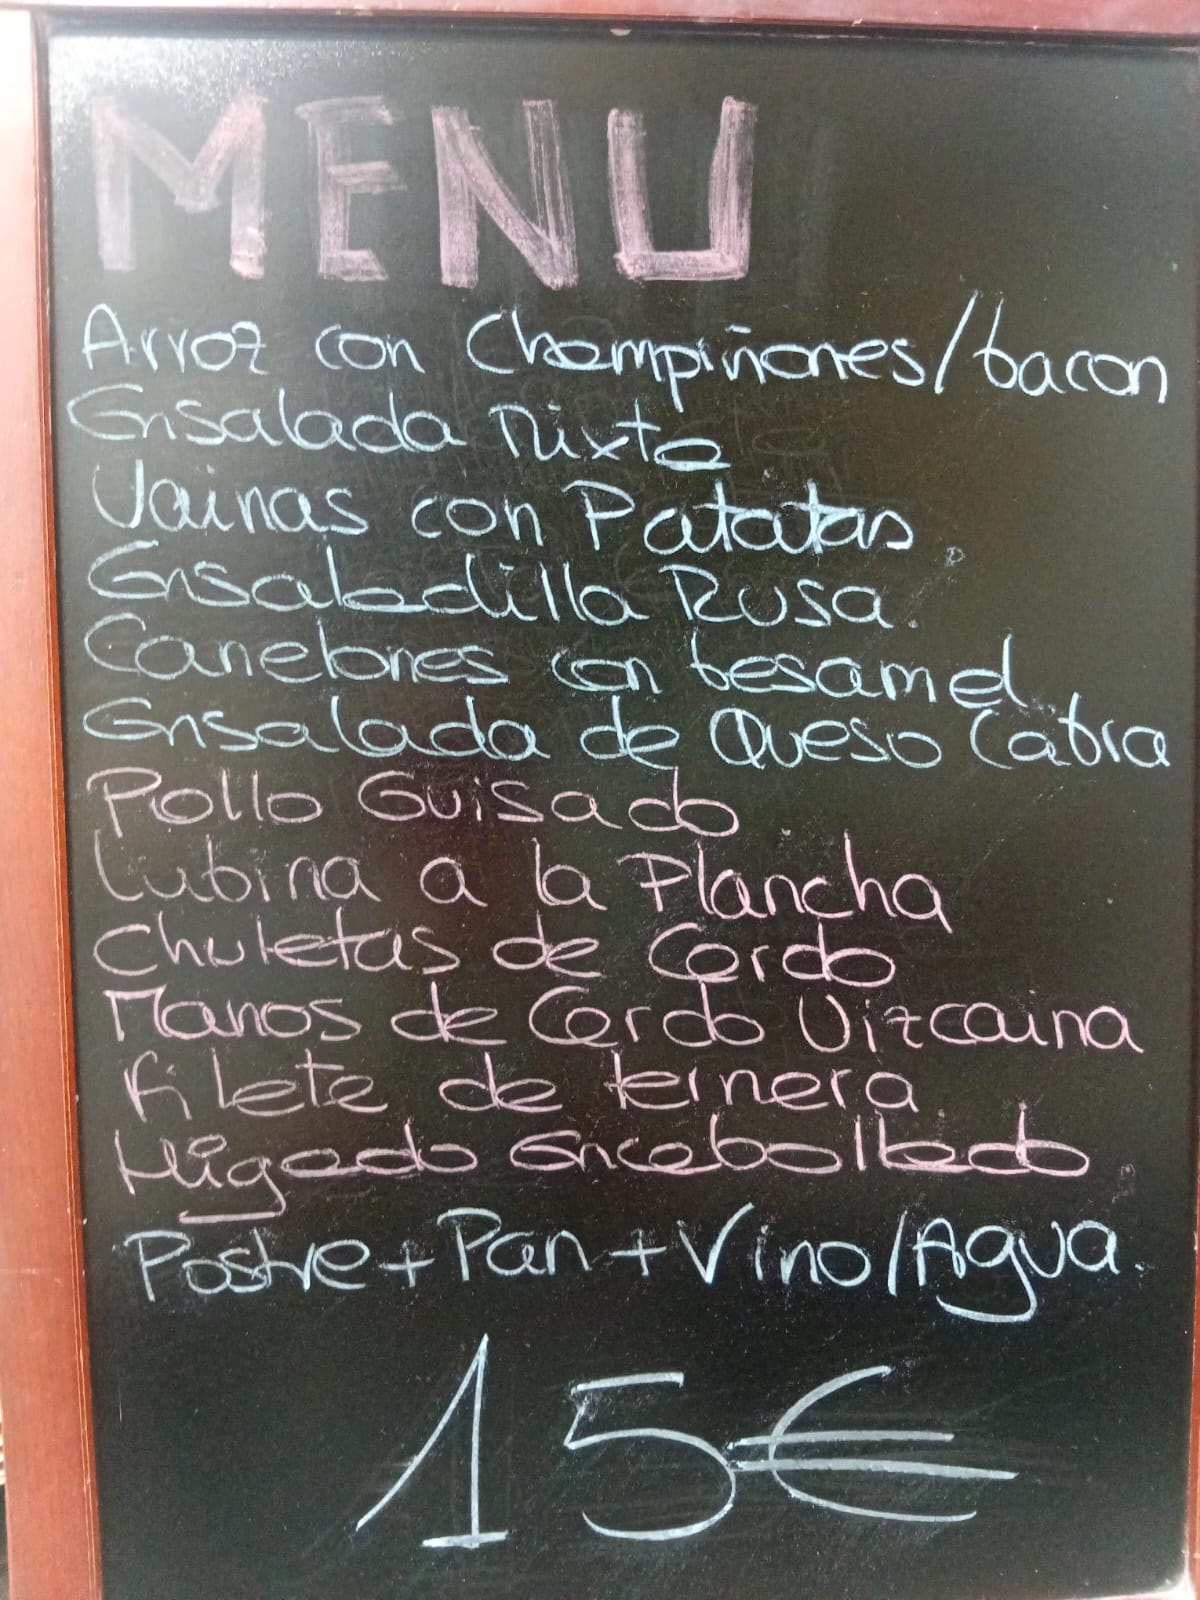 MENU
Arroz con Champiñones/bacon
Ensalada Mixta
Vainas con Patatas
Ensaladilla Rusa.
Canelones con besamel
Ensalada de Queso Cabra
Pollo Guisado
Lubina a la Plancha
Chuletas de Cerdo
Manos de Cerdo Vizcaina
Filete de ternera
Higado Encebollado.
Postre + Pan + Vino/Agua.
15€